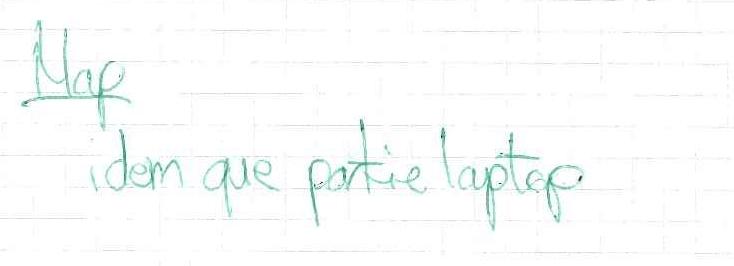 Map
idem que partie laptop